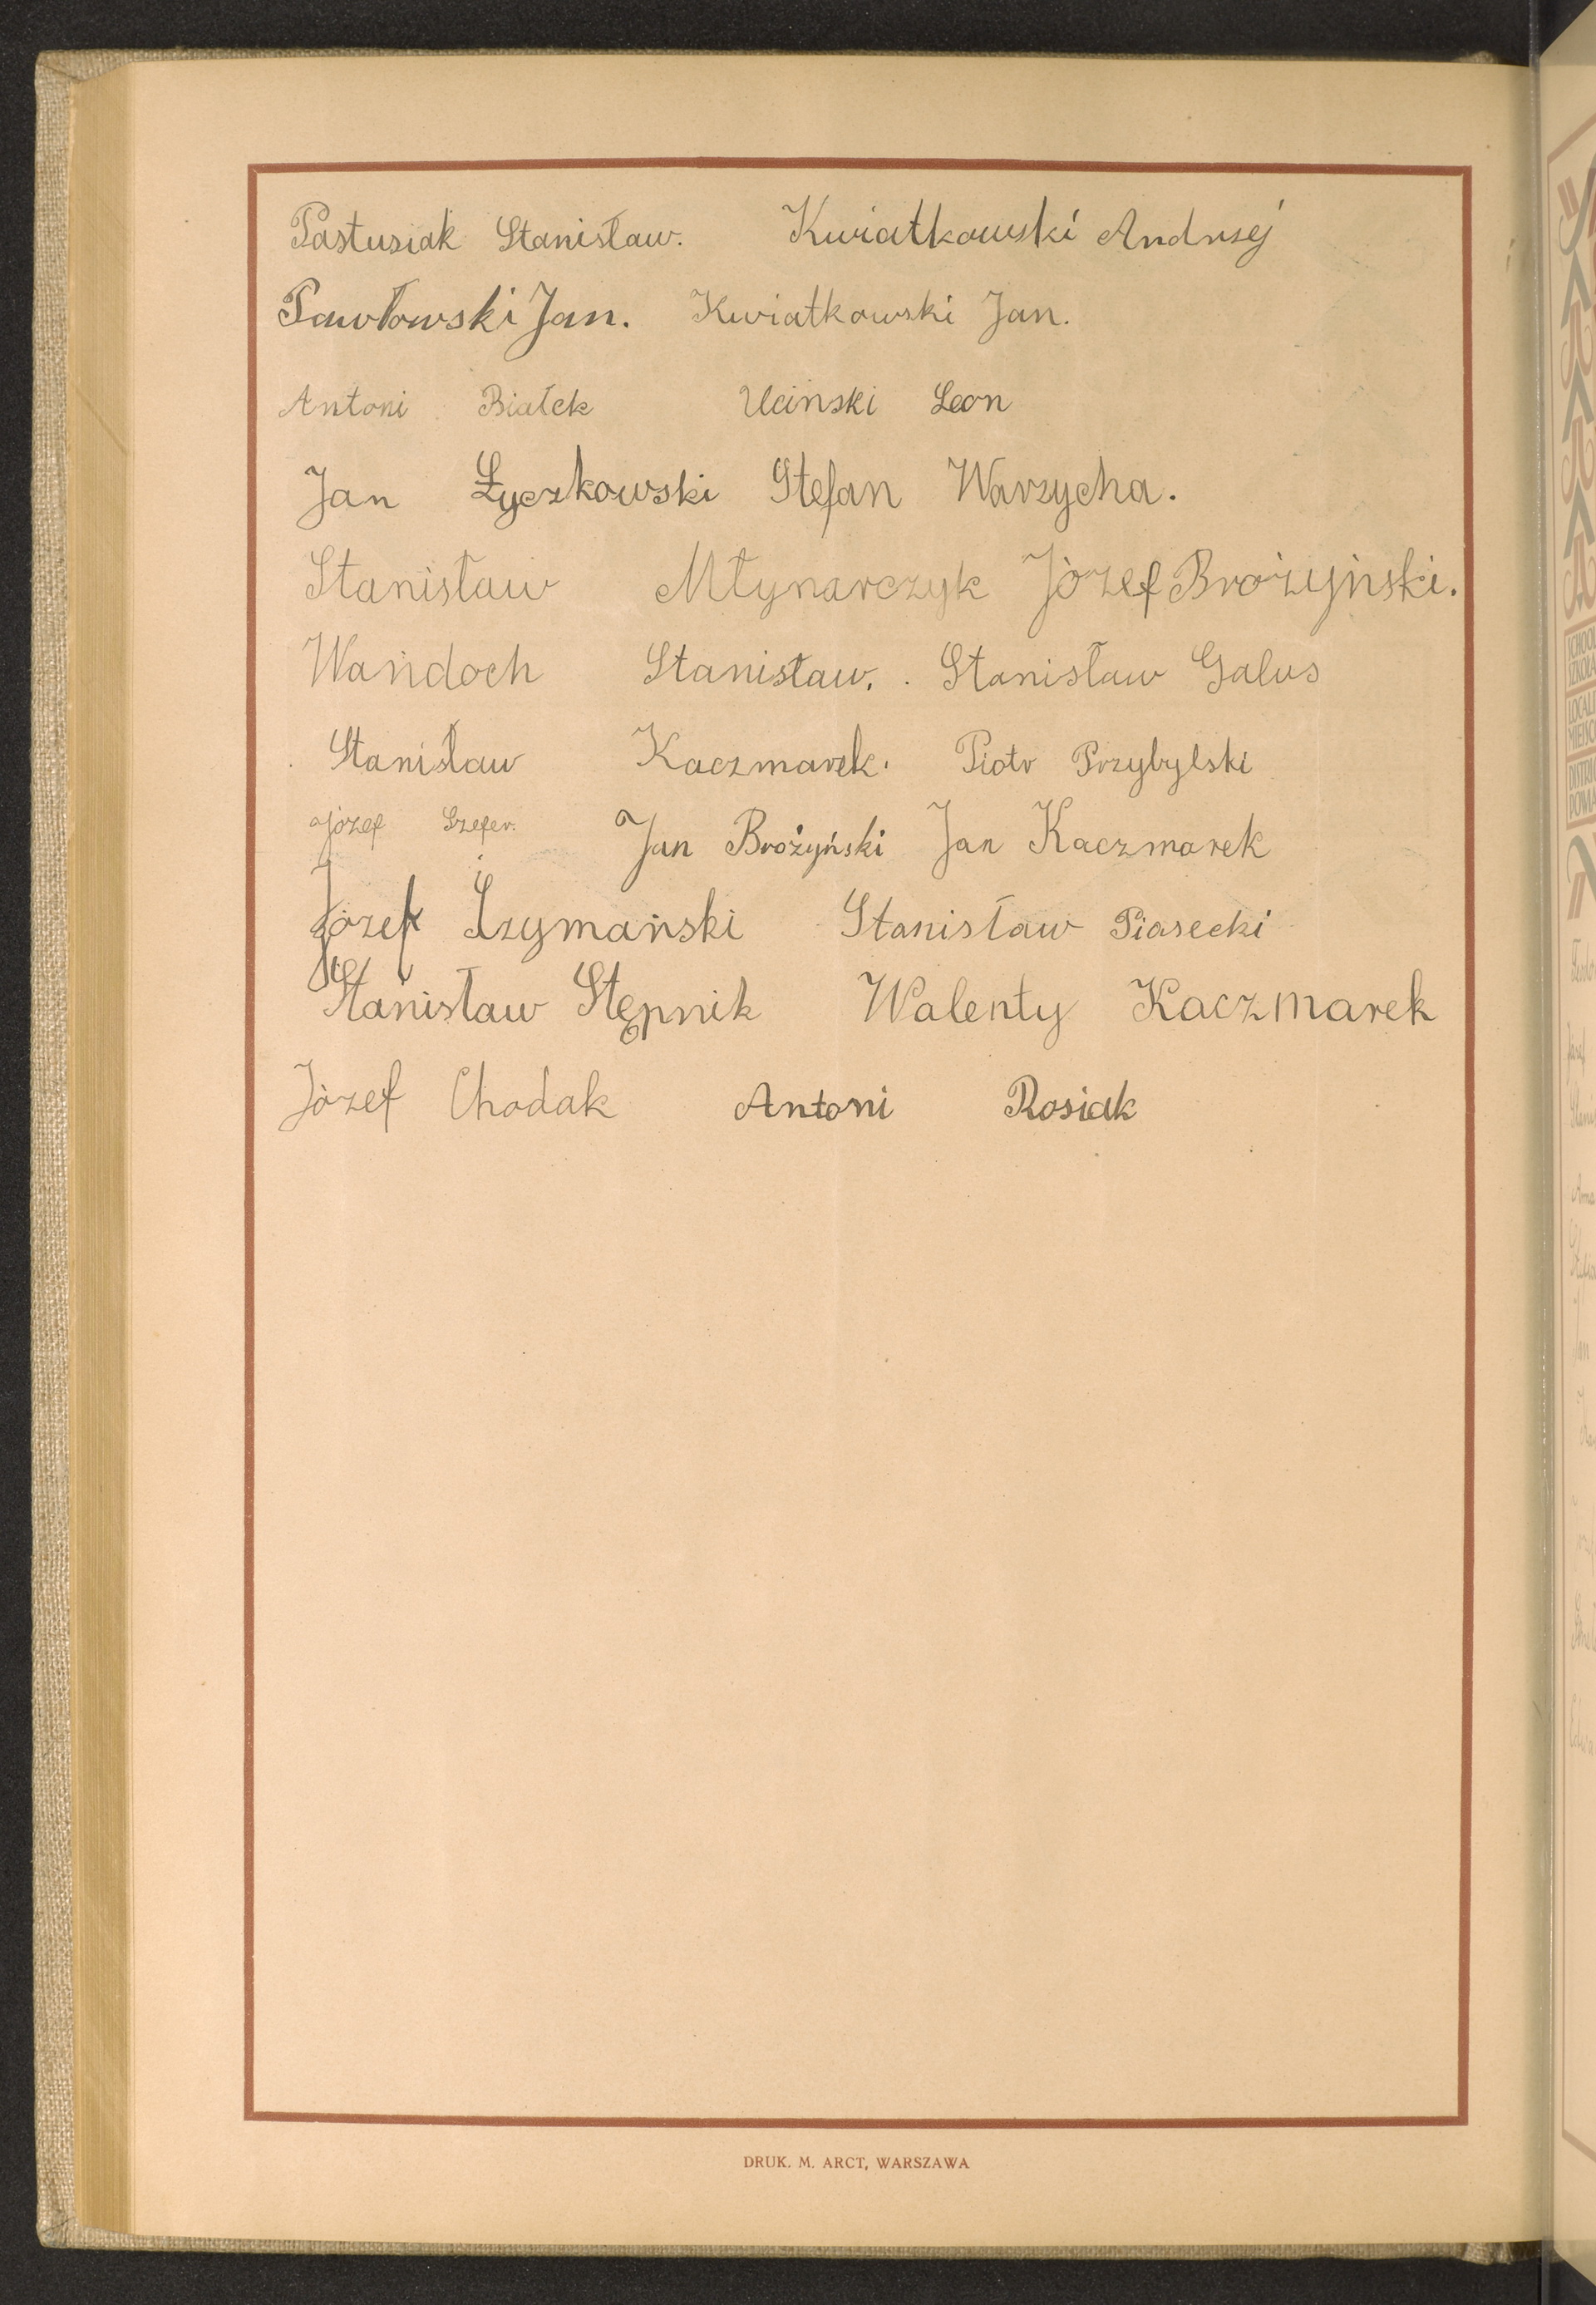 Pastusiak Stanisław. Kwiatkowski Andrzej
Pawłowski Jan. Kwiatkowski Jan.
Antoni Białek Uciński Leon
Jan Łyczkowski Stefan Warzycha.
Stanisław Młynarczyk Józef Brożyński.
Wandoch Stanisław. Stanisław Galus
Stanisław Kaczmarek. Piotr Przybylski
Józef Szefer. Jan Brożyński Jan Kaczmarek
Józef Szymański Stanisław Piasecki
Stanisław Stępnik Walenty Kaczmarek
Józef Chodak Antoni Rosiak
DRUK. M. ARCT, WARSZAWA